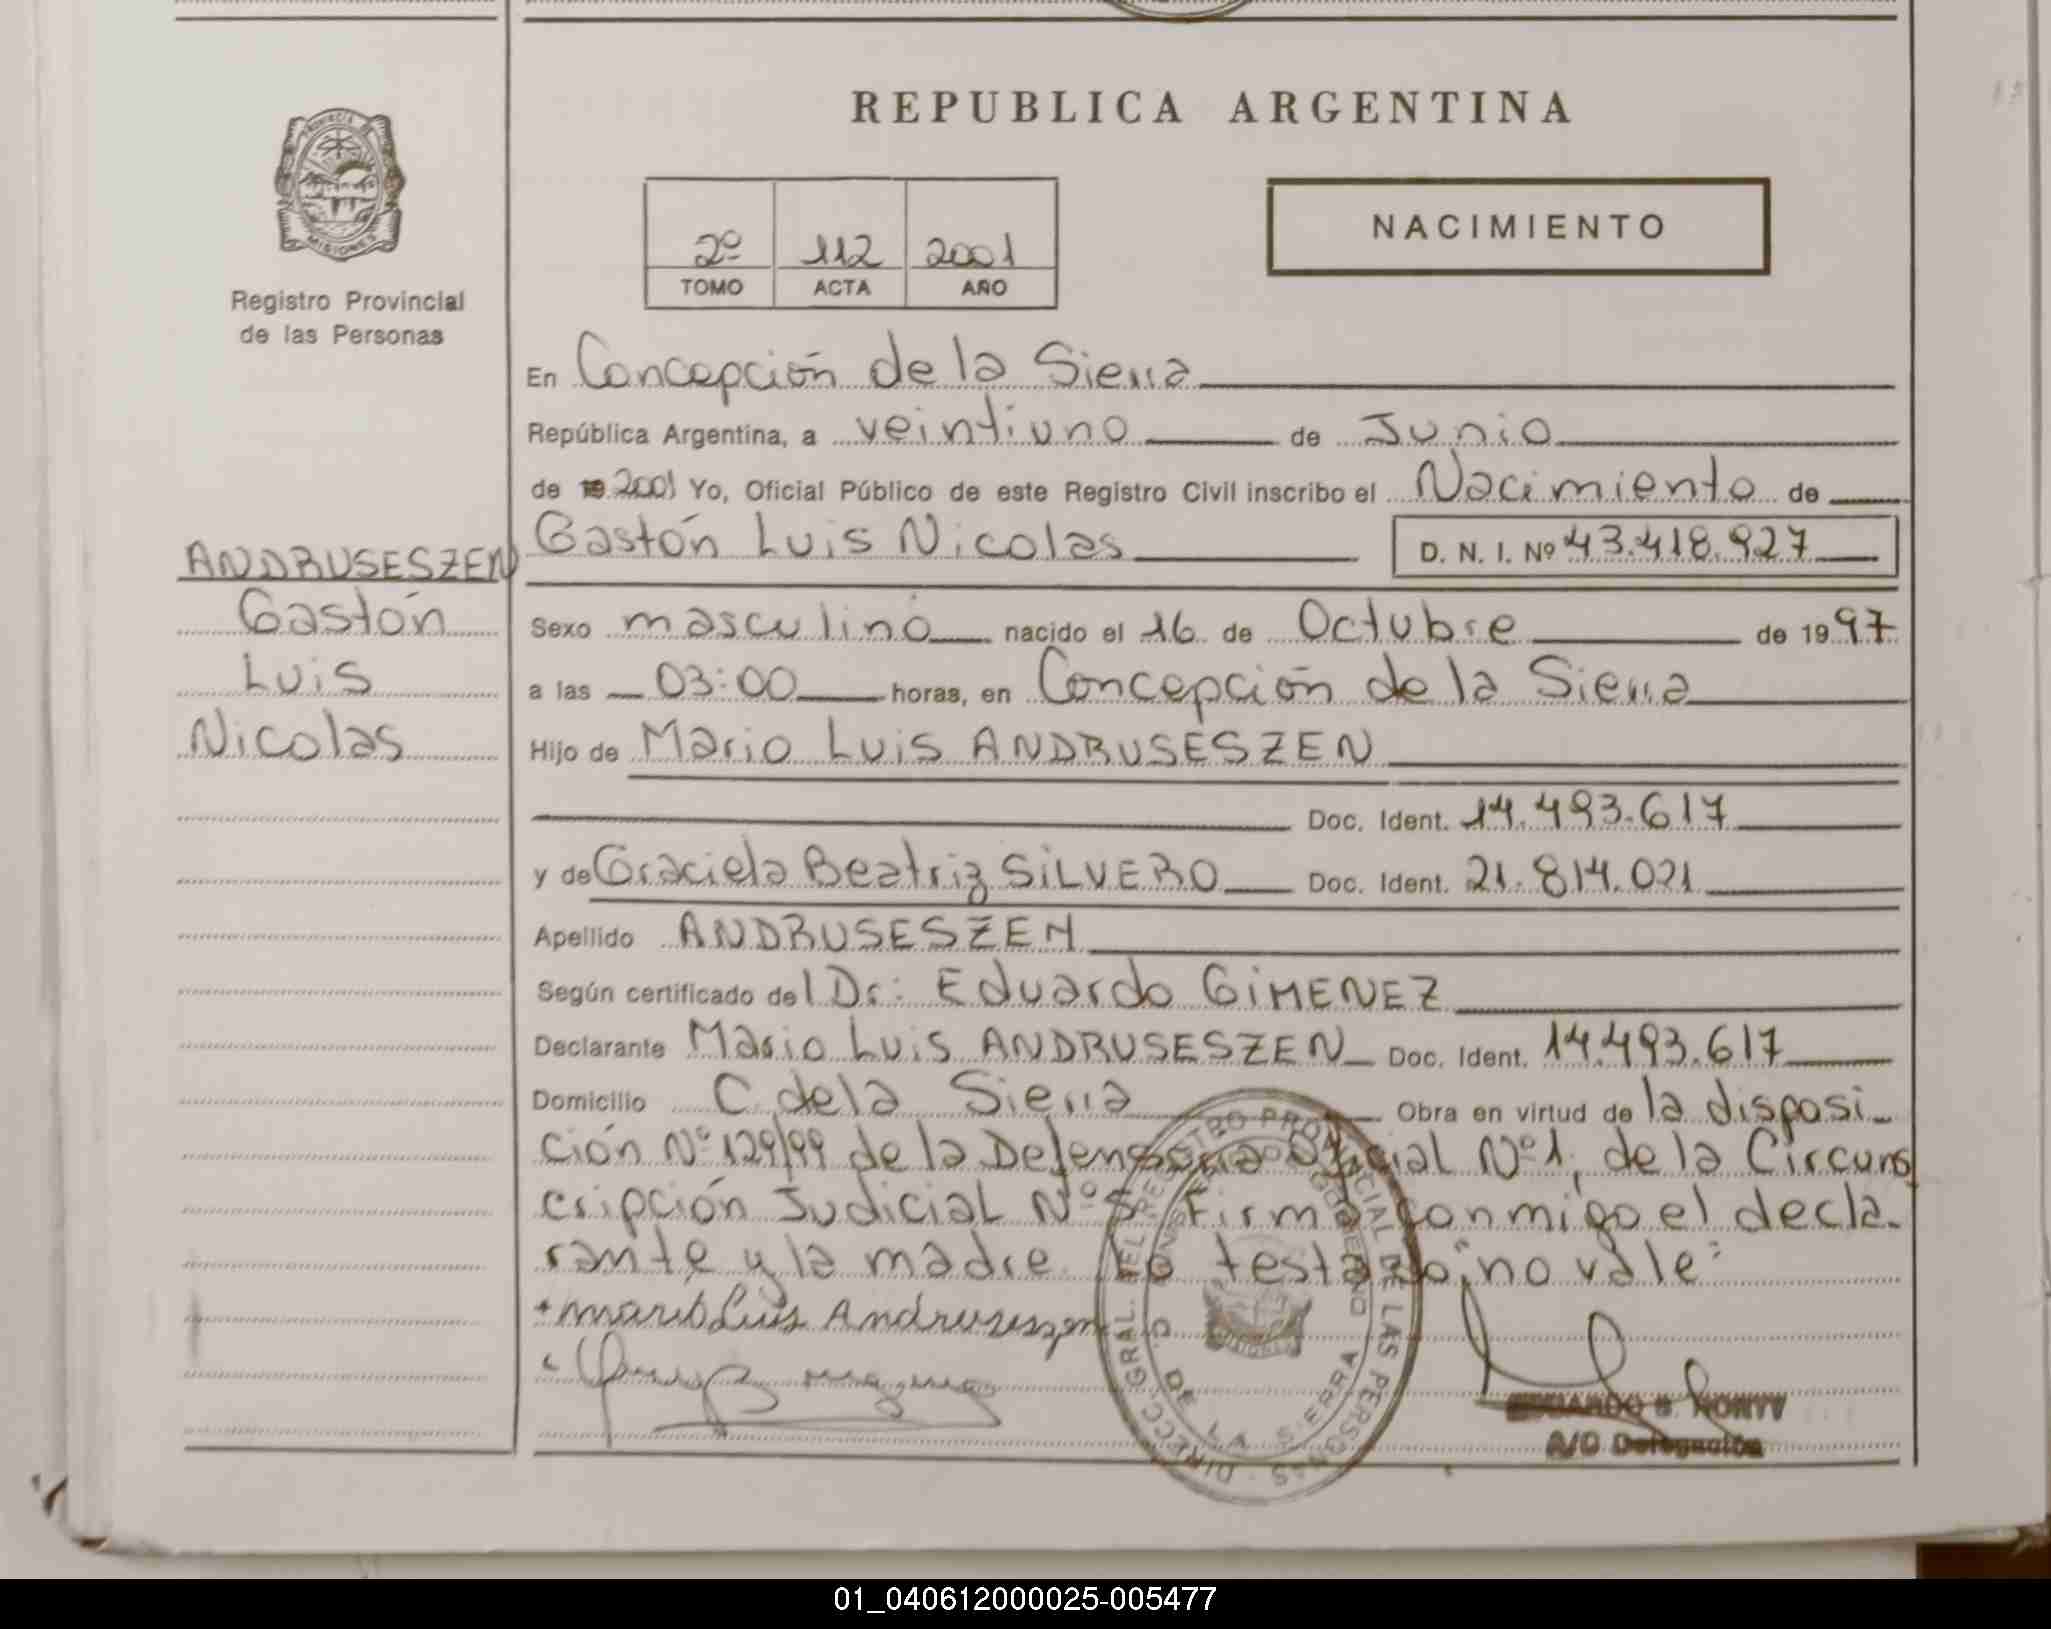 REPUBLICA ARGENTINA
PROVINCIA DE MISIONES
Registro Provincial
de las Personas
2º 112 2001
TOMO ACTA AÑO
NACIMIENTO
En Concepción de la Sierra
República Argentina, a veintiuno de Junio
de 19 2001 Yo, Oficial Público de este Registro Civil inscribo el Nacimiento de
Gastón Luis Nicolas D. N. I. Nº 43.418.927
ANDRUSESZEN
Gastón
Luis
Nicolas
Sexo masculino nacido el 16 de Octubre de 1997
a las 03:00 horas, en Concepción de la Sierra
Hijo de Mario Luis ANDRUSESZEN
Doc. Ident. 14.493.617
y de Graciela Beatriz SILVERO Doc. Ident. 21.814.021
Apellido ANDRUSESZEN
Según certificado del Dr: Eduardo GIMENEZ
Declarante Mario Luis ANDRUSESZEN Doc. Ident. 14.493.617
Domicilio C. de la Sierra Obra en virtud de la disposi-
ción Nº 129/99 de la Defensoria Oficial Nº 1, de la Circuns
cripción Judicial Nº Firma conmigo el decla-
rante y la madre. Lo testado "no vale"
Mario Luis Andruseszen
DIRECC. GRAL. DEL REGISTRO PROVINCIAL DE LAS PERSONAS
C. DE LA SIERRA
A/C Delegación
01_040612000025-005477